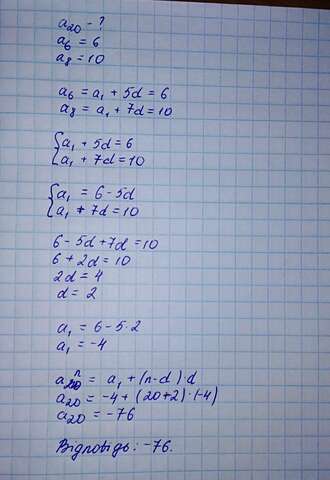 a₂₀ - ?
a₆ = 6
a₈ = 10
a₆ = a₁ + 5d = 6
a₈ = a₁ + 7d = 10
{ a₁ + 5d = 6
a₁ + 7d = 10
{ a₁ = 6 - 5d
a₁ + 7d = 10
6 - 5d + 7d = 10
6 + 2d = 10
2d = 4
d = 2
a₁ = 6 - 5·2
a₁ = -4
aₙ = a₁ + (n-d)·d
a₂₀ = -4 + (20+2)·(-4)
a₂₀ = -76
Відповідь: -76.